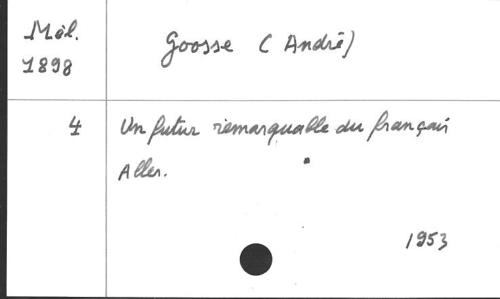 Mél.
1898
Goosse (André)
4
Un futur remarquable du français
Aller.
1953